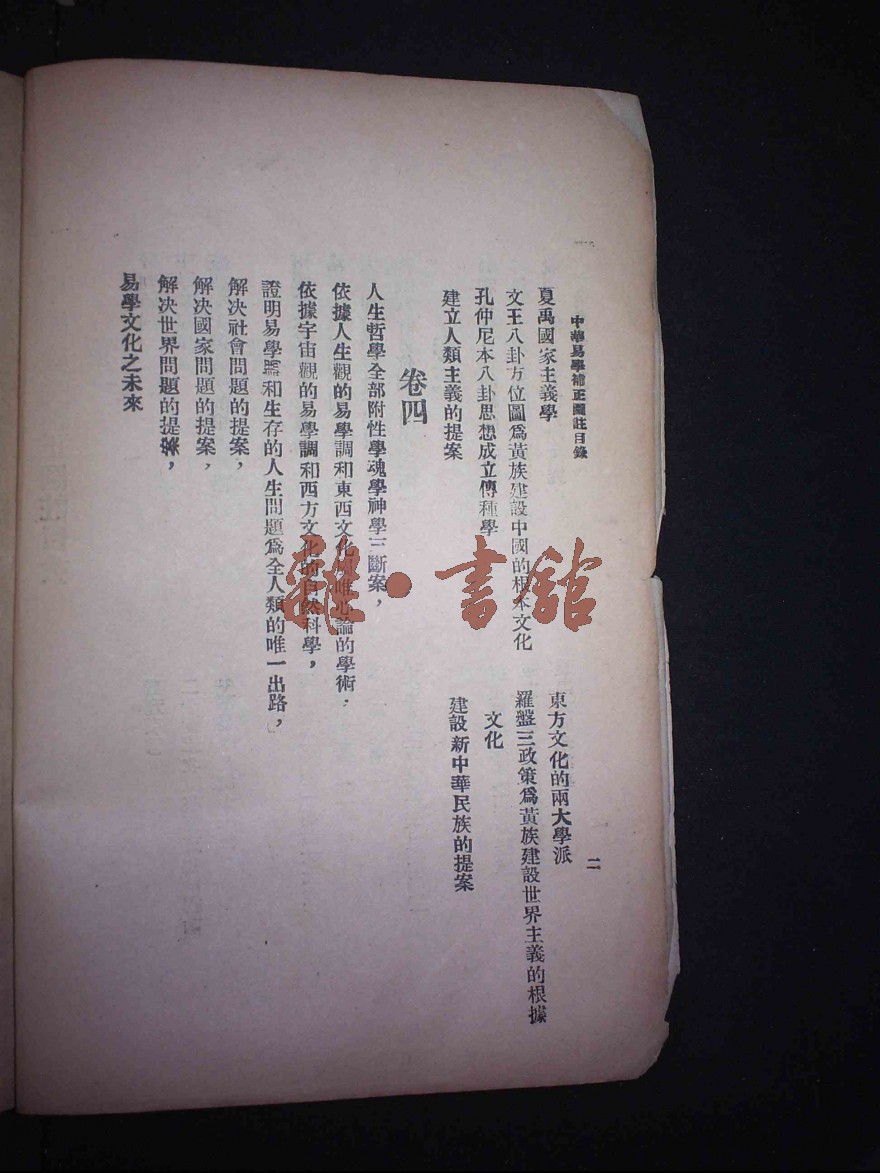 中華易學補正圖註目錄
二
夏禹國家主義學
東方文化的兩大學派
文王八卦方位圖爲黃族建設中國的根本文化
羅盤三政策爲黃族建設世界主義的根據
文化
孔仲尼本八卦思想成立傳種學
建立人類主義的提案
建設新中華民族的提案
卷四
人生哲學全部附性學魂學神學三斷案，
依據人生觀的易學調和東西文化唯心論的學術，
依據宇宙觀的易學調和西方文化的自然科學，
證明易學和生存的人生問題爲全人類的唯一出路，
解決社會問題的提案，
解決國家問題的提案，
解決世界問題的提案，
易學文化之未來
雜·書館